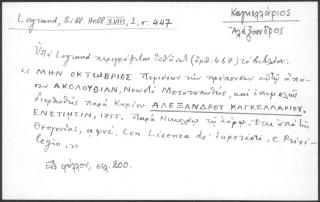 Legrand, Bibl Hell XVIII, I, σ. 447
Καγκελλάριος
Ἀλέξανδρος
Ὑπὸ Legrand περιγράφεται (ἀριθ. 467) τὸ βιβλίον.
"ΜΗΝ ΟΚΤΩΒΡΙΟΣ Περιέχων τὴν πρέπουσαν αὐτῷ ἅπα-
σαν ΑΚΟΛΟΥΘΙΑΝ, Νεωστὶ Μετατυπωθεὶς, καὶ ἐπιμελῶς
διορθωθεὶς παρὰ Κυρίου ΑΛΕΞΑΝΔΡΟΥ ΚΑΓΚΕΛΛΑΡΙΟΥ.
ΕΝΕΤΙΗΣΙΝ, 1755. Παρὰ Νικολάῳ τῷ Σάρῳ. Ἔτει ἀπὸ τῆς
Θεογονίας, αψνέ. Con Licenza de' Superiori, e Privi-
legio,"
Εἰς φύλλον, σελ. 200.